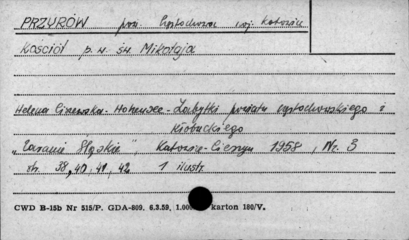 PRZYRÓW pow. Częstochowa woj. Katowice
Kościół p.w. św. Mikołaja
Helena - Hohensee - Zabytki powiatu częstochowskiego i
kłobuckiego
"Zaranie Śląskie", Katowice-Cieszyn 1958, Nr. 3
str. 38, 40, 41, 42 1 ilustr.
CWD B-15b Nr 515/P. GDA-809. 6.3.59. 1.00 karton 180/V.